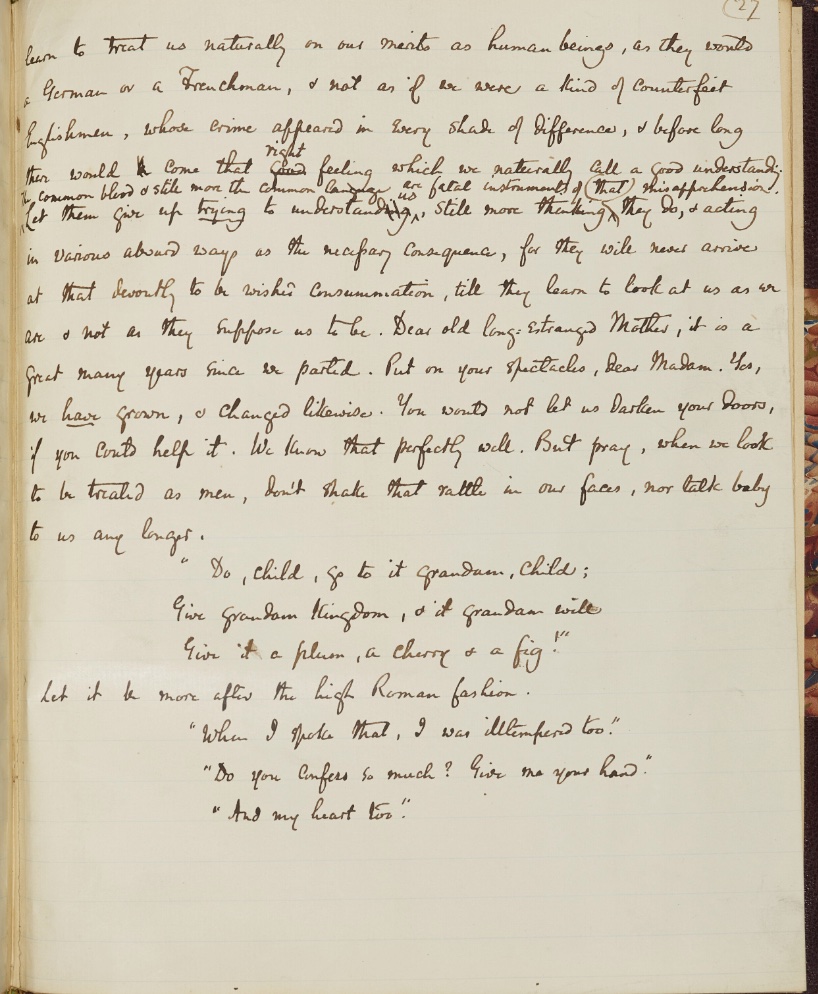 27
learn to treat us naturally on our merits as human beings, as they would
a German or a Frenchman, & not as if we were a kind of counterfeit
Englishmen, whose crime appeared in every shade of difference, & before long
right
there would come that good feeling which we naturally call a good understandi
The common blood & still more the common language are fatal instruments of (that) misapprehension.
us
Let them give up trying to understanding, still more thinking they do, & acting
in various absurd ways as the necessary consequence, for they will never arrive
at that devoutly to be wish'd consummation, till they learn to look at us as we
are & not as they suppose us to be. Dear old long-estranged Mother, it is a
great many years since we parted. Put on your spectacles, dear Madam. Yes,
we have grown, & changed likewise. You would not let us darken your doors,
if you could help it. We know that perfectly well. But pray, when we look
to be treated as men, don't shake that rattle in our faces, nor talk baby
to us any longer.
" Do, child, go to it grandam, child;
Give grandam kingdom, & it grandam will
Give it a plum, a cherry & a fig!"
Let it be more after the high Roman fashion.
"When I spoke that, I was illtempered too."
"Do you confess so much? Give me your hand."
"And my heart too."